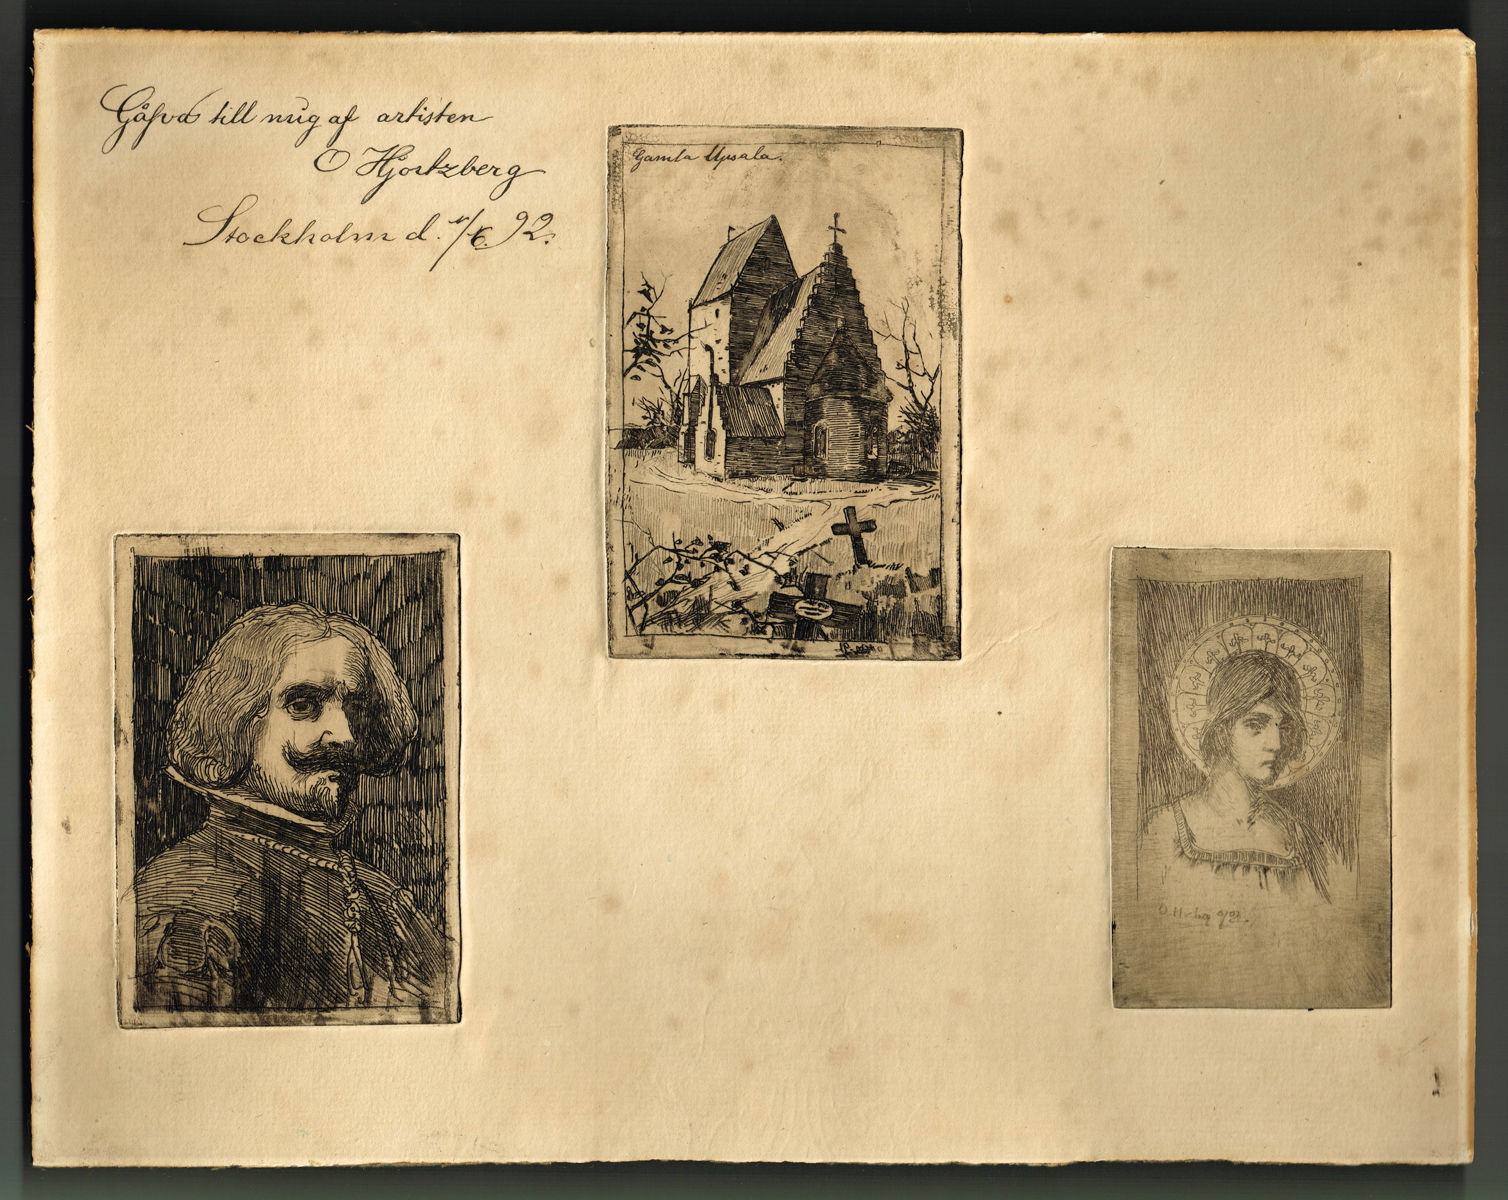 Gåfva till mig af artisten
O Hjortzberg
Stockholm d. /6 92.
Gamla Upsala.